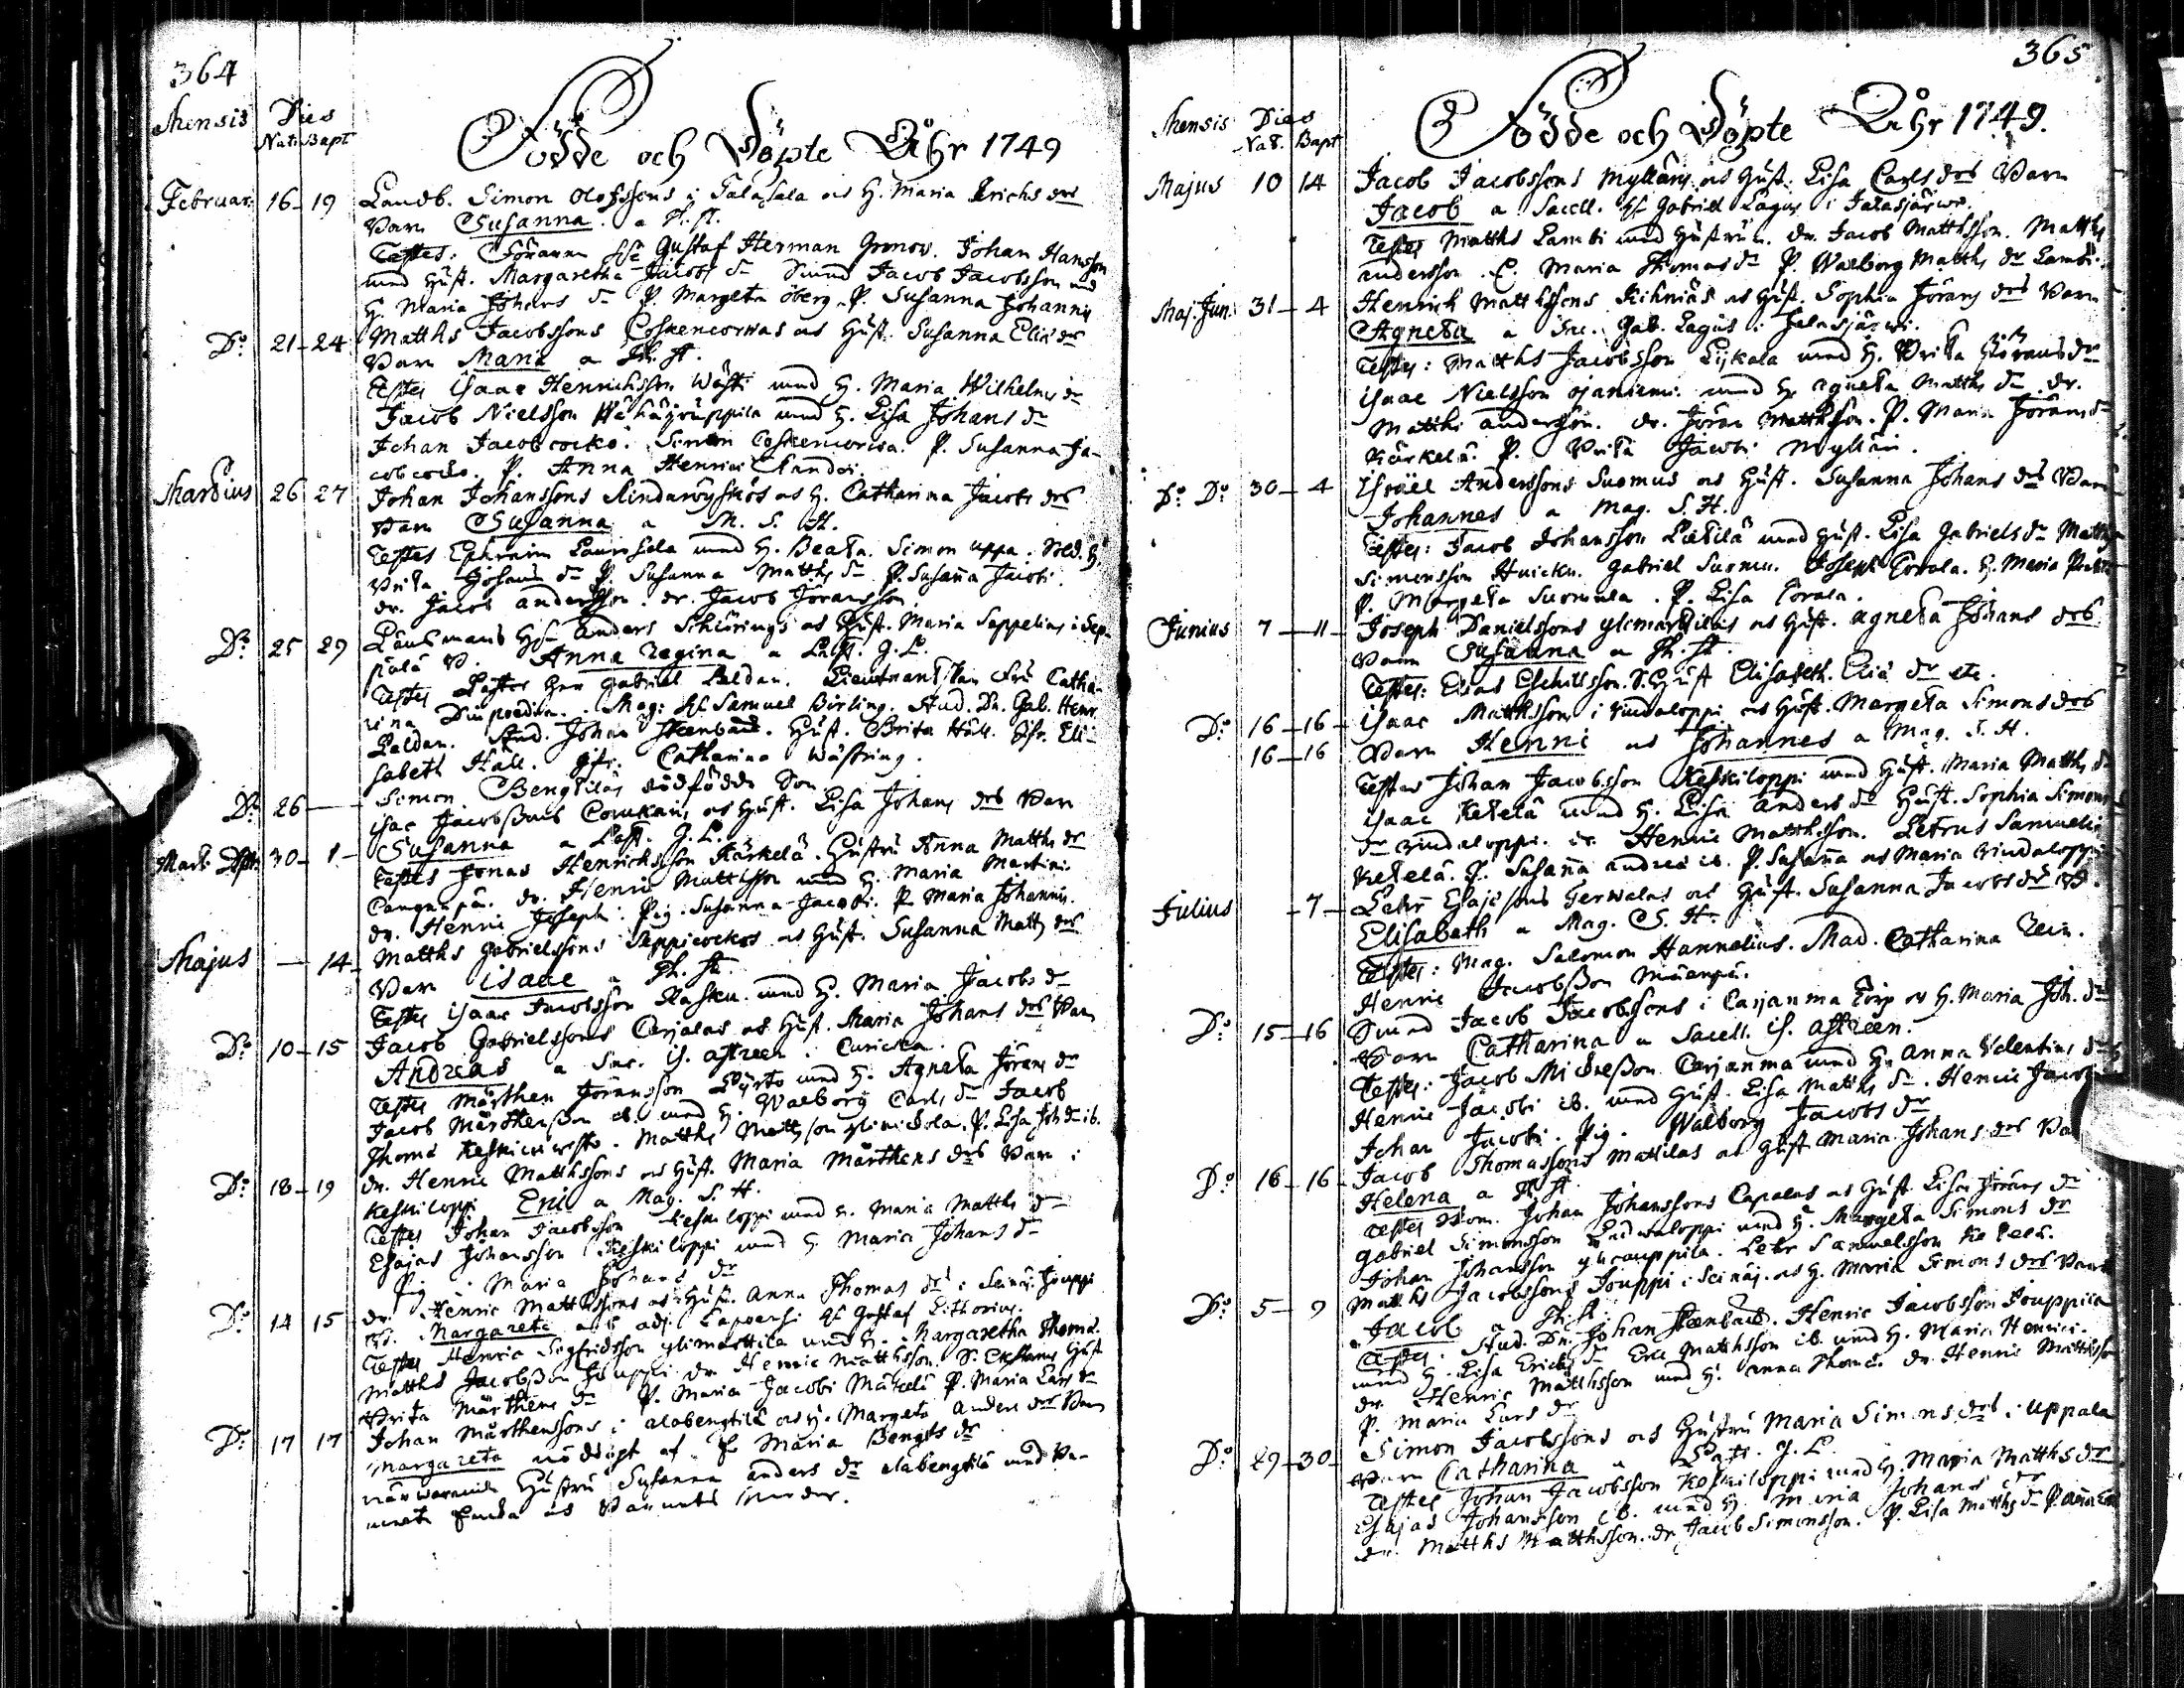 364
Mensis Dies
Nati Bapt
Födde och Döpte Åhr 1749
Februar. 16 - 19 Landb. Simon Olofssons i Talasela och H. Maria Erichs drs
Barn Susanna. a
Testes: Gustaf Herman Gronow. Johan Hansson
med Hust. Margaretha Jacobs dr Jacob Jacobsson med
H. Maria Johans dr P. Margeta Öberg. P. Susanna Johannis
Do 21 - 24 Matths Jacobssons Coskencorwas och Hust. Susanna Eliæ dr
Barn Maria a
Testes Isaac Henrichsson Wästi med H. Maria Wilhelms dr
Jacob Nielsson med H. Lisa Johans dr
Johan Jacobcocko. Simon Coskencorwa. P. Susanna Ja-
cobcocko. P. Anna Henrici
Martius 26 27 Johan Johanssons och H. Catharina Jacobs drs
Barn Susanna a M. S. H.
Testes Ephraim med H. Beata. Simon Uppa. Sold. H.
Brita Johans dr P. Susanna Matths dr P. Susanna Jacobi.
dr. Jacob Andersson. dr. Jacob Joransson.
Do 25 29 Länsmans Hr Anders Schierings och Hust. Maria Seppelius i Sep-
pälä B. Anna Regina a Past. G. P.
Testes Pastor Herr Gabriel Peldan. Lieutnantskan Fru Catha-
rina Mag: Hr Samuel Birling. Stud. Dn. Gab. Henr.
Peldan. Stud. Johan Stenbäck. Hust. Brita Häll. Eli-
sabeth Häll. Catharina Wästring.
Do 26 - Simon Bengtiläs dödfödde Son
Mart. Apr. 30 - 1 Isac Jacobssons och Hust. Lisa Johans drs Barn
Susanna a Past. G. P.
Testes Jonas Henrichsson Kärkelä. Hustru Anna Matths dr
dr. Henric Matthsson med H. Maria Martini.
dr. Henric Joseph. Pig. Susanna Jacobi. P. Maria Johannis.
Majus - 14 Matths Gabrielssons Seppicockos och Hust. Susanna Matts drs
Barn Isaac a
Testes Isaac Jacobsson Rasku med H. Maria Jacobs dr
Do 10 - 15 Jacob Gabrielssons Carjalas och Hust. Maria Johans drs Barn
Andreas a Sac. Is. Astreen i Curicka.
Testes Mårthen Joransson med H. Agneta Jörans dr
Jacob Mårthensson ib. med H. Walborg Carls dr Jacob
Thomæ. Matths Mattsson. P. Lisa Joh dr ib.
Do 18 - 19 dr. Henric Matthssons och Hust. Maria Mårthens drs Barn i
Keskiloppi Eric a Mag. S. H.
Testes Johan Jacobsson Keskiloppi med H. Maria Matths dr
Esajas Johansson Keskiloppi med H. Maria Johans dr
Pig. Maria Johans dr
Do 14 15 dr. Henric Matthssons och Hust. Anna Thomas drs i Seinäj. Jouppi
B. Margareta ab adj. Lapoensi Hr Gustaf Lithorius.
Testes Henric Sigfridsson Ylimarttila med H. Margaretha Thomæ.
Matths Jacobsson Jouppi. dr. Henric Matthsson. Hust
Brita Mårthens dr P. Maria Jacobi. P. Maria Lars dr
Do 17 17 Johan Mårthenssons i Alabengtilä och H. Margeta Anders drs Barn
Margareta nöddöpt af H. Maria Bengts dr
närwarande Hustru Susanna Anders dr Alabengtilä

365
Mensis Dies
Nat. Bapt
Födde och Döpte Åhr 1749.
Majus 10 14 Jacob Jacobssons Mylläris och Hust. Lisa Carls drs Barn
Jacob a Sacell. Hr Gabriel Lagus i Jalasjärwi.
Testes Matths Lambi med Hustrun. dr. Jacob Matthsson. Matths
Andersson. P. Maria Thomas dr P. Walborg Matths dr Lambi.
Maj. Jun. 31 - 4 Henrich Matthssons Rihniäs och Hust. Sophia Jörans drs Barn
Agneta a Sac. Gab. Lagus i Jalasjärwi.
Testes: Matths Jacobsson med H. Brita Jörans dr
Isaac Nielsson Ojaniemi med H. Agneta Matths dr. dr.
Matths Andersson. dr. Jöran Matthsson. P. Maria Jörans dr
Kärkelä. P. Brita Jacobi Mylläri.
Do Do 30 - 4 Israel Anderssons Suomus och Hust. Susanna Johans drs Barn
Johannes a Mag. S. H.
Testes: Jacob Johansson med Hust. Lisa Gabriels dr Matths
Simonsson Huicku. Gabriel Suomu. Joseph. H. Maria
P. Margeta Suomela. P. Lisa
Junius 7 - 11 Joseph Danielssons Ylimartiläs och Hust. Agneta Johans drs
Barn Susanna a
Testes: Elias Eschilsson. Hust Elisabeth Eliæ dr etc.
Do 16 - 16 Isaac Matthsson i Rindaloppi och Hust. Margeta Simons drs
16 - 16 Barn Henric och Johannes a Mag. S. H.
Testes Johan Jacobsson Keskiloppi med Hust. Maria Matths dr
Isaac Ketelä med H. Lisa Anders dr Hust. Sophia Simons
dr Rindaloppi. dr. Henric Matthsson. Petrus Samuelis
Ketelä. P. Susanna Andreæ ib. P. Susanna och Maria Rindaloppi
Julius - 7 Petr Esajæsons Terwalas och Hust. Susanna Jacobs dr B.
Elisabeth a Mag. S. H.
Testes: Mag. Salomon Hannelius. Mad. Catharina Rein.
Henric Jacobsson Mäenpä.
Do 15 - 16 Jacob Jacobssons i Carjanma Torp och H. Maria Joh. drs
Barn Catharina a Sacell. Is. Astreen.
Testes: Jacob Michelsson Carjanma med H. Anna Valentins dr
Henric Jacobi ib. med Hust. Lisa Matths dr. Henric Jacobi
Johan Jacobi. Pig. Walborg Jacobs dr
Do 16 - 16 Jacob Thomassons Mattilas och Hust Maria Johans drs Ba
Helena a
Testes Johan Johanssons och Hust Lisa Jörans dr
Gabriel Simonsson med H. Margeta Simons dr
Johan Johansson Ylicauppila. Petr Samuelsson Ketelä.
Do 5 - 9 Matths Jacobssons Jouppi i Seinäj. och H. Maria Simons drs Barn
Jacob a
Testes: Stud. Dn. Johan Stenbäck. Henric Jacobsson Jouppila
med H. Lisa Erichs dr Eric Matthsson ib. med H. Maria Henrici.
dr. Henric Matthsson med H. Anna Thomæ. dr. Henric Matthsson
P. Maria Lars dr
Do 29 - 30 Simon Jacobssons och Hustru Maria Simons drs i Uppala
Barn Catharina a Past. G. P.
Testes Johan Jacobsson Keskiloppi med H. Maria Matths dr
Esajas Johansson ib. med H. Maria Johans dr
dr. Matths Matthsson. dr Jacob Simonsson. P. Lisa Matths dr